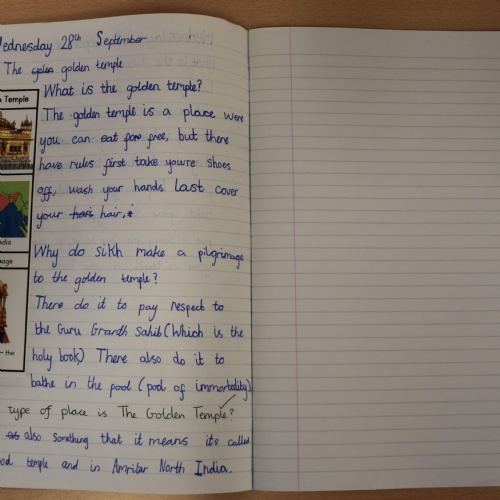 Wednesday 28th September
The golden temple
n Temple
What is the golden temple?
The golden temple is a place were
you can eat free, but there
have rules first take youre shoes
off, wash your hands last cover
your hair,
ndia
Why do sikh make a pilgrimage
mage
to the golden temple?
There do it to pay respect to
the Guru Granth Sahib (Which is the
– the
holy book) There also do it to
bathe in the pool (pool of immortality)
type of place is The Golden Temple?
also something that it means its called
temple and in Amritsar North India.